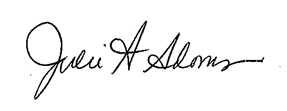 Julie A Adams